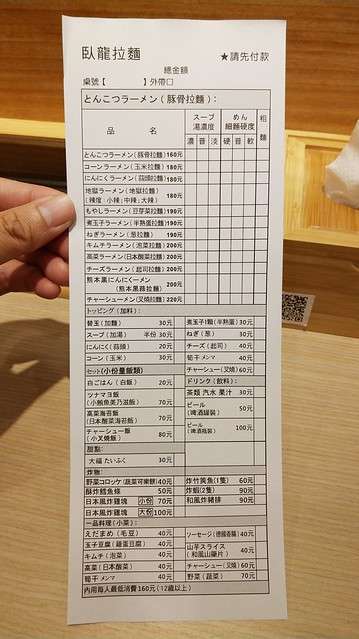 臥龍拉麵
★請先付款
總金額
桌號【 】外帶□
とんこつラーメン(豚骨拉麵):
品 名
スープ 湯濃度
めん 細麵硬度
粗麵
濃 普 淡 硬 普 軟
とんこつラーメン(豚骨拉麵) 160元
コーンラーメン(玉米拉麵) 180元
にんにくラーメン(蒜頭拉麵) 180元
地獄ラーメン(地獄拉麵)
(辣度:小辣;中辣;大辣) 180元
もやしラーメン(豆芽菜拉麵) 190元
煮玉子ラーメン(半熟蛋拉麵) 190元
ねぎラーメン(葱拉麵) 190元
キムチラーメン(泡菜拉麵) 200元
高菜ラーメン(日本酸菜拉麵) 200元
チーズラーメン(起司拉麵) 200元
熊本黒にんにくーメン
熊本黑蒜拉麵 200元
チャーシューメン(叉燒拉麵) 220元
トッピング(加料):
替玉(加麵) 30元
スープ(加湯) 半份 30元
にんにく(蒜頭) 20元
コーン(玉米) 30元
煮玉子1顆(半熟蛋) 30元
ねぎ(葱) 30元
チーズ(起司) 40元
筍干メンマ 40元
チャーシュー(叉燒) 60元
セット(小份量飯類)
白ごはん(白飯) 20元
ツナマヨ飯
(小鮪魚美乃滋飯) 70元
高菜海苔飯
(日本酸菜海苔飯) 70元
チャーシュー飯
(小叉燒飯) 80元
ドリンク(飲料):
茶類 汽水 果汁 30元
ビール
(啤酒罐裝) 50元
ビール
(啤酒瓶裝) 100元
甜點:
大福 たいふく 30元
炸物:
野菜コロッケ(蔬菜可樂餅) 40元
酥炸鱈魚條 50元
日本風炸雞塊 小份 70元
日本風炸雞塊 大份 100元
炸竹莢魚(1隻) 60元
炸蝦(2隻) 90元
和風炸豬排 90元
一品料理(小菜):
えだまめ(毛豆) 40元
玉子豆腐(雞蛋豆腐) 40元
キムチ(泡菜) 40元
高菜(日本酸菜) 40元
筍干メンマ 40元
ソーセージ(德國香腸) 40元
山芋スライス
(和風山藥片) 40元
チャーシュー(叉燒) 60元
野菜(蔬菜) 70元
內用每人最低消費160元(12歲以上)